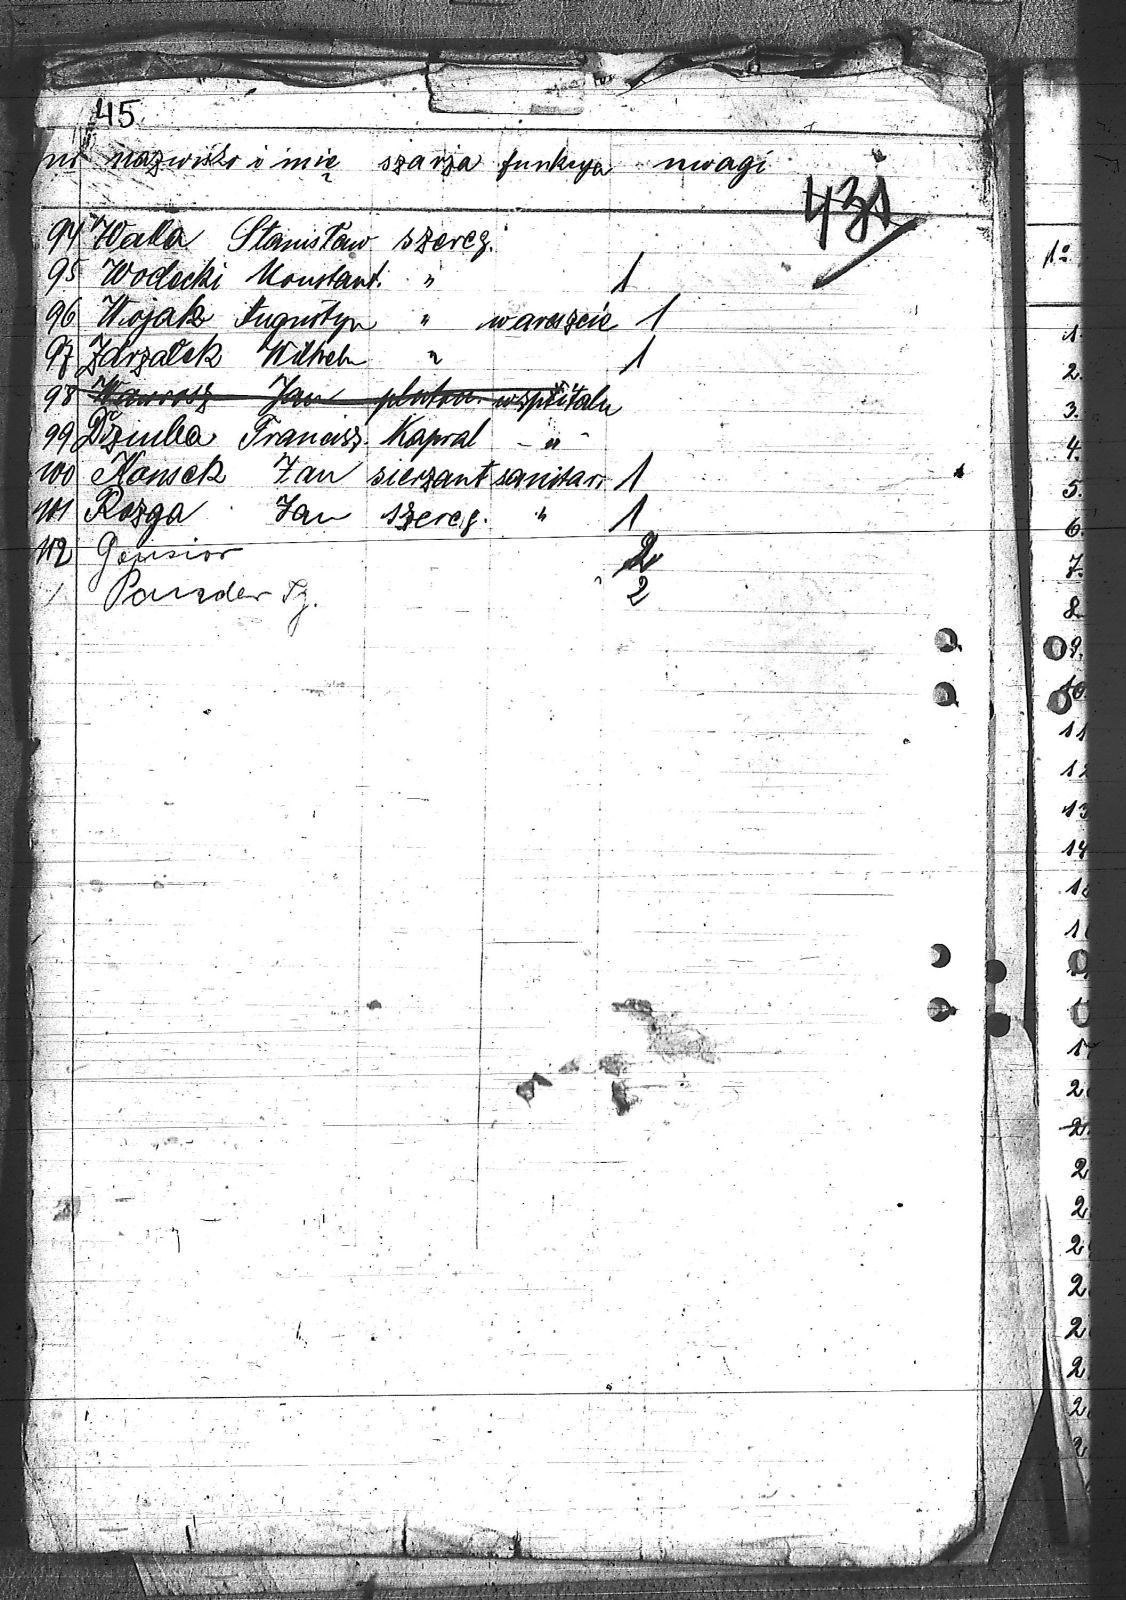 45.
nr nazwisko i imię szarża funkcja uwagi
431
94 Wala Stanisław szereg.
95 Wodecki Konstant. " 1
96 Wojak Augustyn " w areszcie 1
97 Zarzałek Wilhelm " 1
98 Wawrosz Jan pluton. w szpitalu
99 Dziuba Francisz. Kapral - " -
100 Konsek Jan sierżant sanitar. 1
101 Rozga Jan szereg. " 1
102 Gensior 2
Pander Fz. 2
1.
2.
3.
4.
5.
6.
7.
8.
9.
10
11
12
13
14